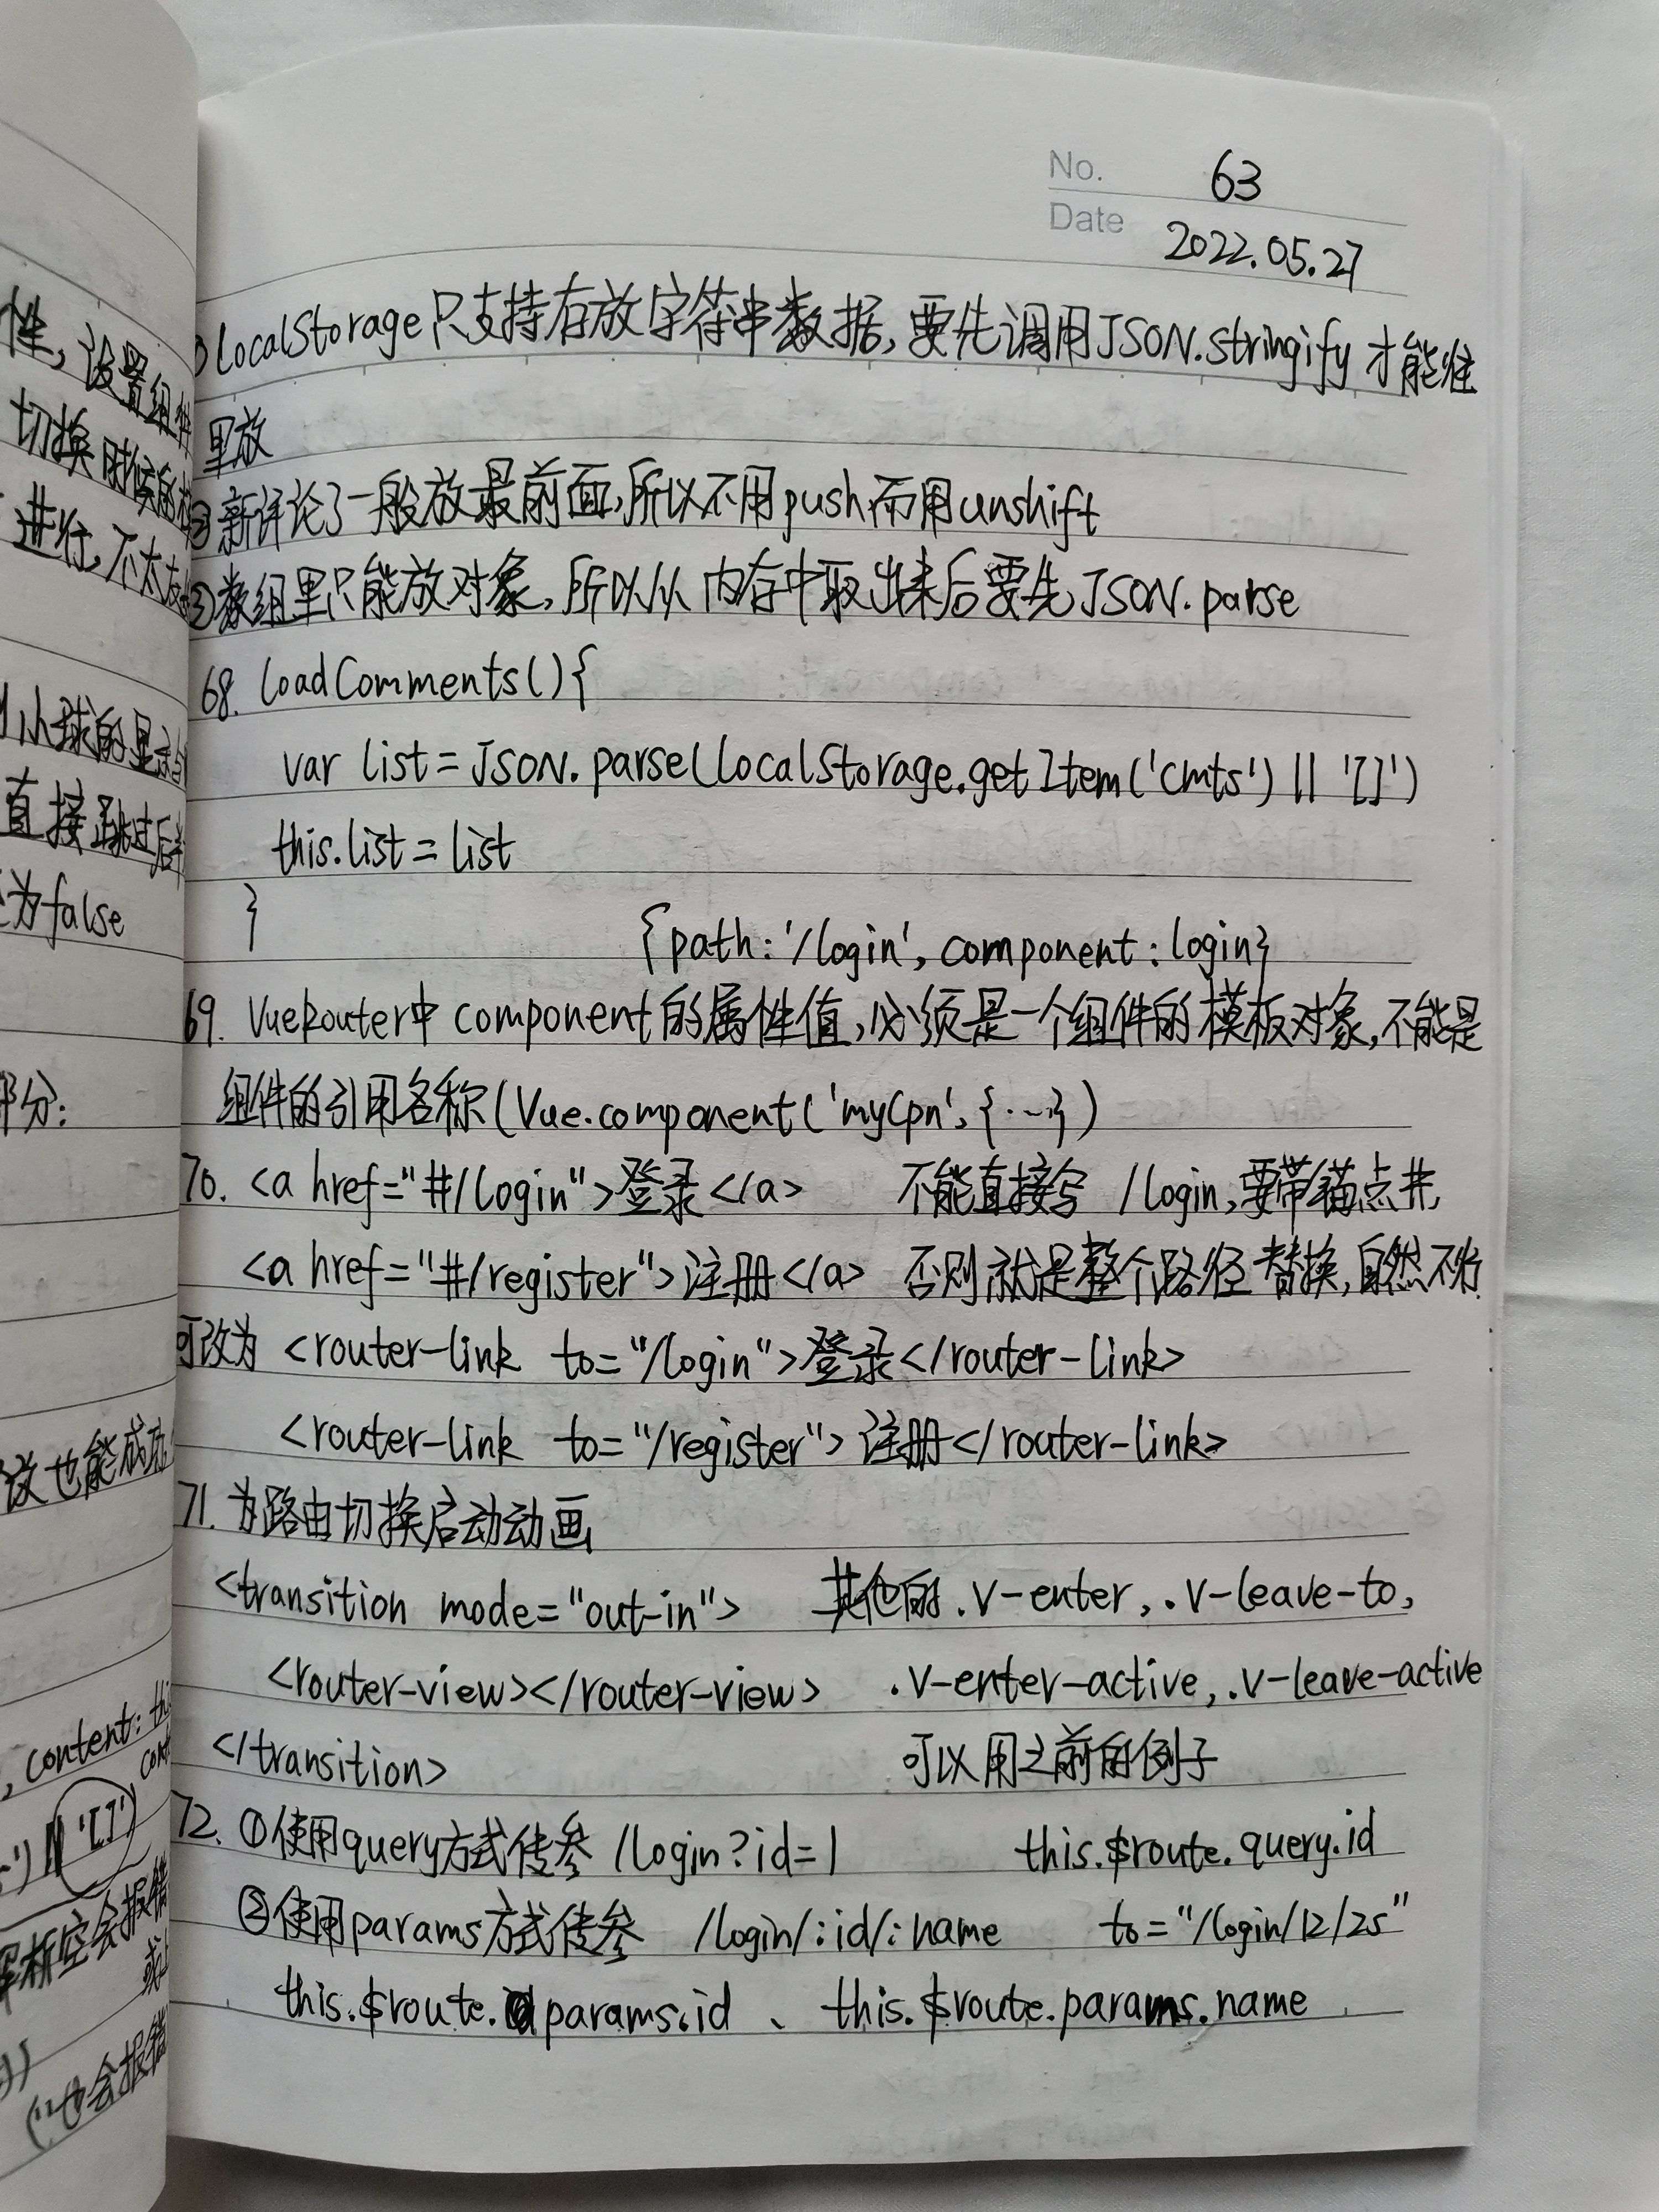 性,设置组件
切换时候的
进行,不太
小球的显示与
直接跳过后半
为false
部分:
放也能成功
, content: thi
con
') || '[]')
解析空会报错
或
('' 也会报错
No. 63
Date 2022.05.27
①localStorage只支持存放字符串数据,要先调用JSON.stringify才能往
里放
②新评论了一般放最前面,所以不用push而用unshift
③数组里只能放对象,所以从内存中取出来后要先JSON.parse
68. loadComments(){
var list = JSON.parse(localStorage.getItem('cmts') || '[]')
this.list = list
}
{path: '/login', component: login}
69. VueRouter中component的属性值,必须是一个组件的模板对象,不能是
组件的引用名称(Vue.component('myCpn', {…})
70. <a href="#/login">登录</a> 不能直接写 /login,要带锚点#,
<a href="#/register">注册</a> 否则就是整个路径替换,自然不行
可改为 <router-link to="/login">登录</router-link>
<router-link to="/register">注册</router-link>
71. 为路由切换启动动画
<transition mode="out-in"> 其他的 .v-enter, .v-leave-to,
<router-view></router-view> .v-enter-active, .v-leave-active
</transition> 可以用之前的例子
72. ①使用query方式传参 /login?id=1 this.$route.query.id
②使用params方式传参 /login/:id/:name to="/login/12/zs"
this.$route.params.id 、 this.$route.params.name